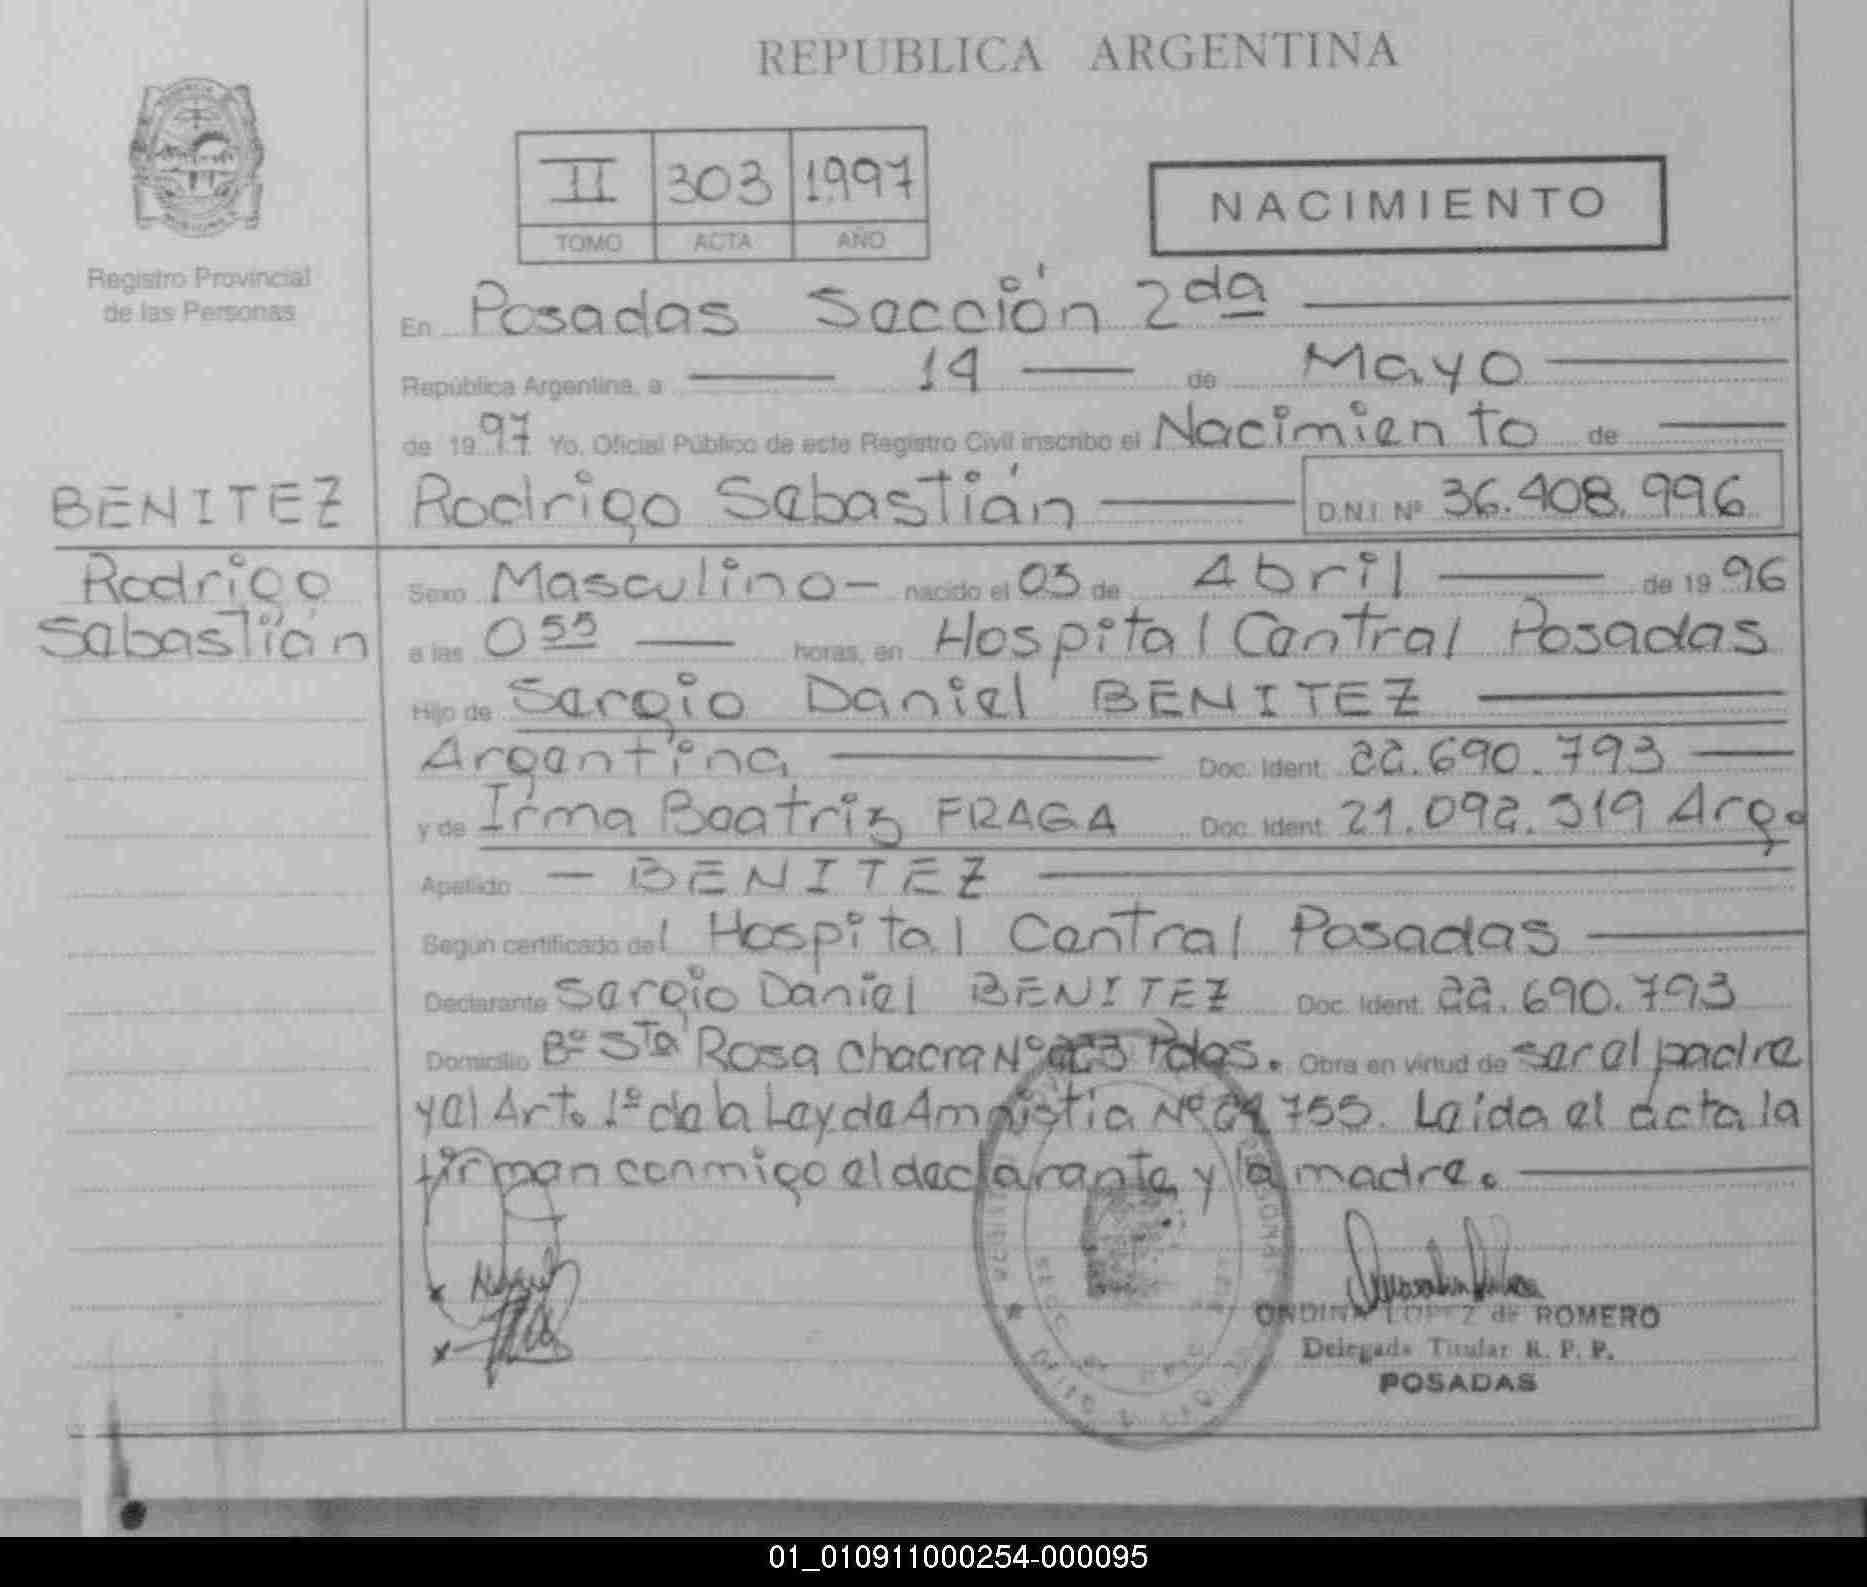 REPUBLICA ARGENTINA
II 303 1997
TOMO ACTA AÑO
NACIMIENTO
Registro Provincial
de las Personas
En Posadas Sección 2da
República Argentina, a 14 de Mayo
de 1997 Yo, Oficial Público de este Registro Civil inscribo el Nacimiento de
BENITEZ
Rodrigo
Sebastián
Rodrigo Sebastián D.N.I. Nº 36.408.996
Sexo Masculino - nacido el 03 de Abril de 1996
a las 0 55 horas, en Hospital Central Posadas
Hijo de Sergio Daniel BENITEZ
Argentina Doc. Ident. 22.690.793
y de Irma Beatriz FRAGA Doc. Ident. 21.092.319 Arg.
Apellido - BENITEZ
Según certificado del Hospital Central Posadas
Declarante Sergio Daniel BENITEZ Doc. Ident. 22.690.793
Domicilio Bº Sta Rosa chacra Nº Pdas. Obra en virtud de ser el padre
y el Art. 1º de la Ley de Amnistia Nº 755. Leída el acta la
firman conmigo el declarante y la madre.
ONDINA LOPEZ de ROMERO
Delegada Titular R. P. P.
POSADAS
01_010911000254-000095